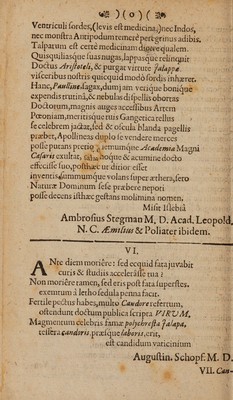 )( o )(
Ventriculi sordes, (levis est medicina,) nec Indos,
nec monstra Antipodum merces peregrinas adibis.
Talparum est certè medicinam digere qualem.
Quisquiliasque suas nugas, lappasque relinquit
Doctus Aristoteles, & purgat virtute Jalappæ
visceribus nostris quicquid modò sordis inhæret.
Hanc, Paulline, sagax, dum jam verisque bonique
expendis trutinâ, & nebulas dispellis obortas
Doctorum, magnis auges accessibus Artem
Pœoniam, meritisque tuis Gangetica tellus
se celebrem jactat, sed & oscula blanda pagellis
præbet, Apollineas duplo se vendere merces
posse putans pretio: semumque Academia Magni
Cæsaris exultat, hoque & acumine docto
effecisse suo, possit ut ditior esset
inventis, summumque volans super æthera, sero
Naturæ Dominum sese præbere nepoti
posse decens isthæc gestans molimina nomen.
Misit Islebiâ
Ambrosius Stegman M. D. Acad. Leopold.
N. C. Æmilius & Poliater ibidem.
VI.
ANte diem moriêre: sed ecquid fata juvabit
curis & studiis accelerâsse tua?
Non moriêre tamen, sed eris post fata superstes.
exemtum â letho sedula penna facit.
Fertile pectus habes, multo Candore refertum,
ostendunt doctum publica scripta VIRUM.
Magmentum celebris famæ polychresta Jalapa,
tessera candoris, præsque laboris, erit,
est candidum vaticinium
Augustin. Schopf: M. D.
VII. Can-